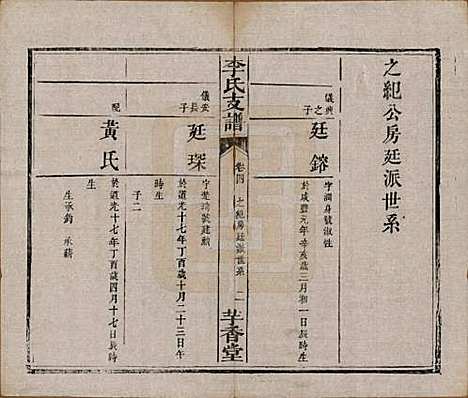 之紀公房廷派世系
儀典之子
廷鎔
字潤身號淑性
於咸豐元年辛亥歲三月初一日長時生
李氏支譜
卷四
之紀房廷派世系
二
芉香堂
儀典長子
廷琛
字楚琦號建勳
於道光十七年丁酉歲十月二十三日午時生
子二
配
黃氏
於道光十七年丁酉歲四月十七日辰時生
生承鈞 承籌